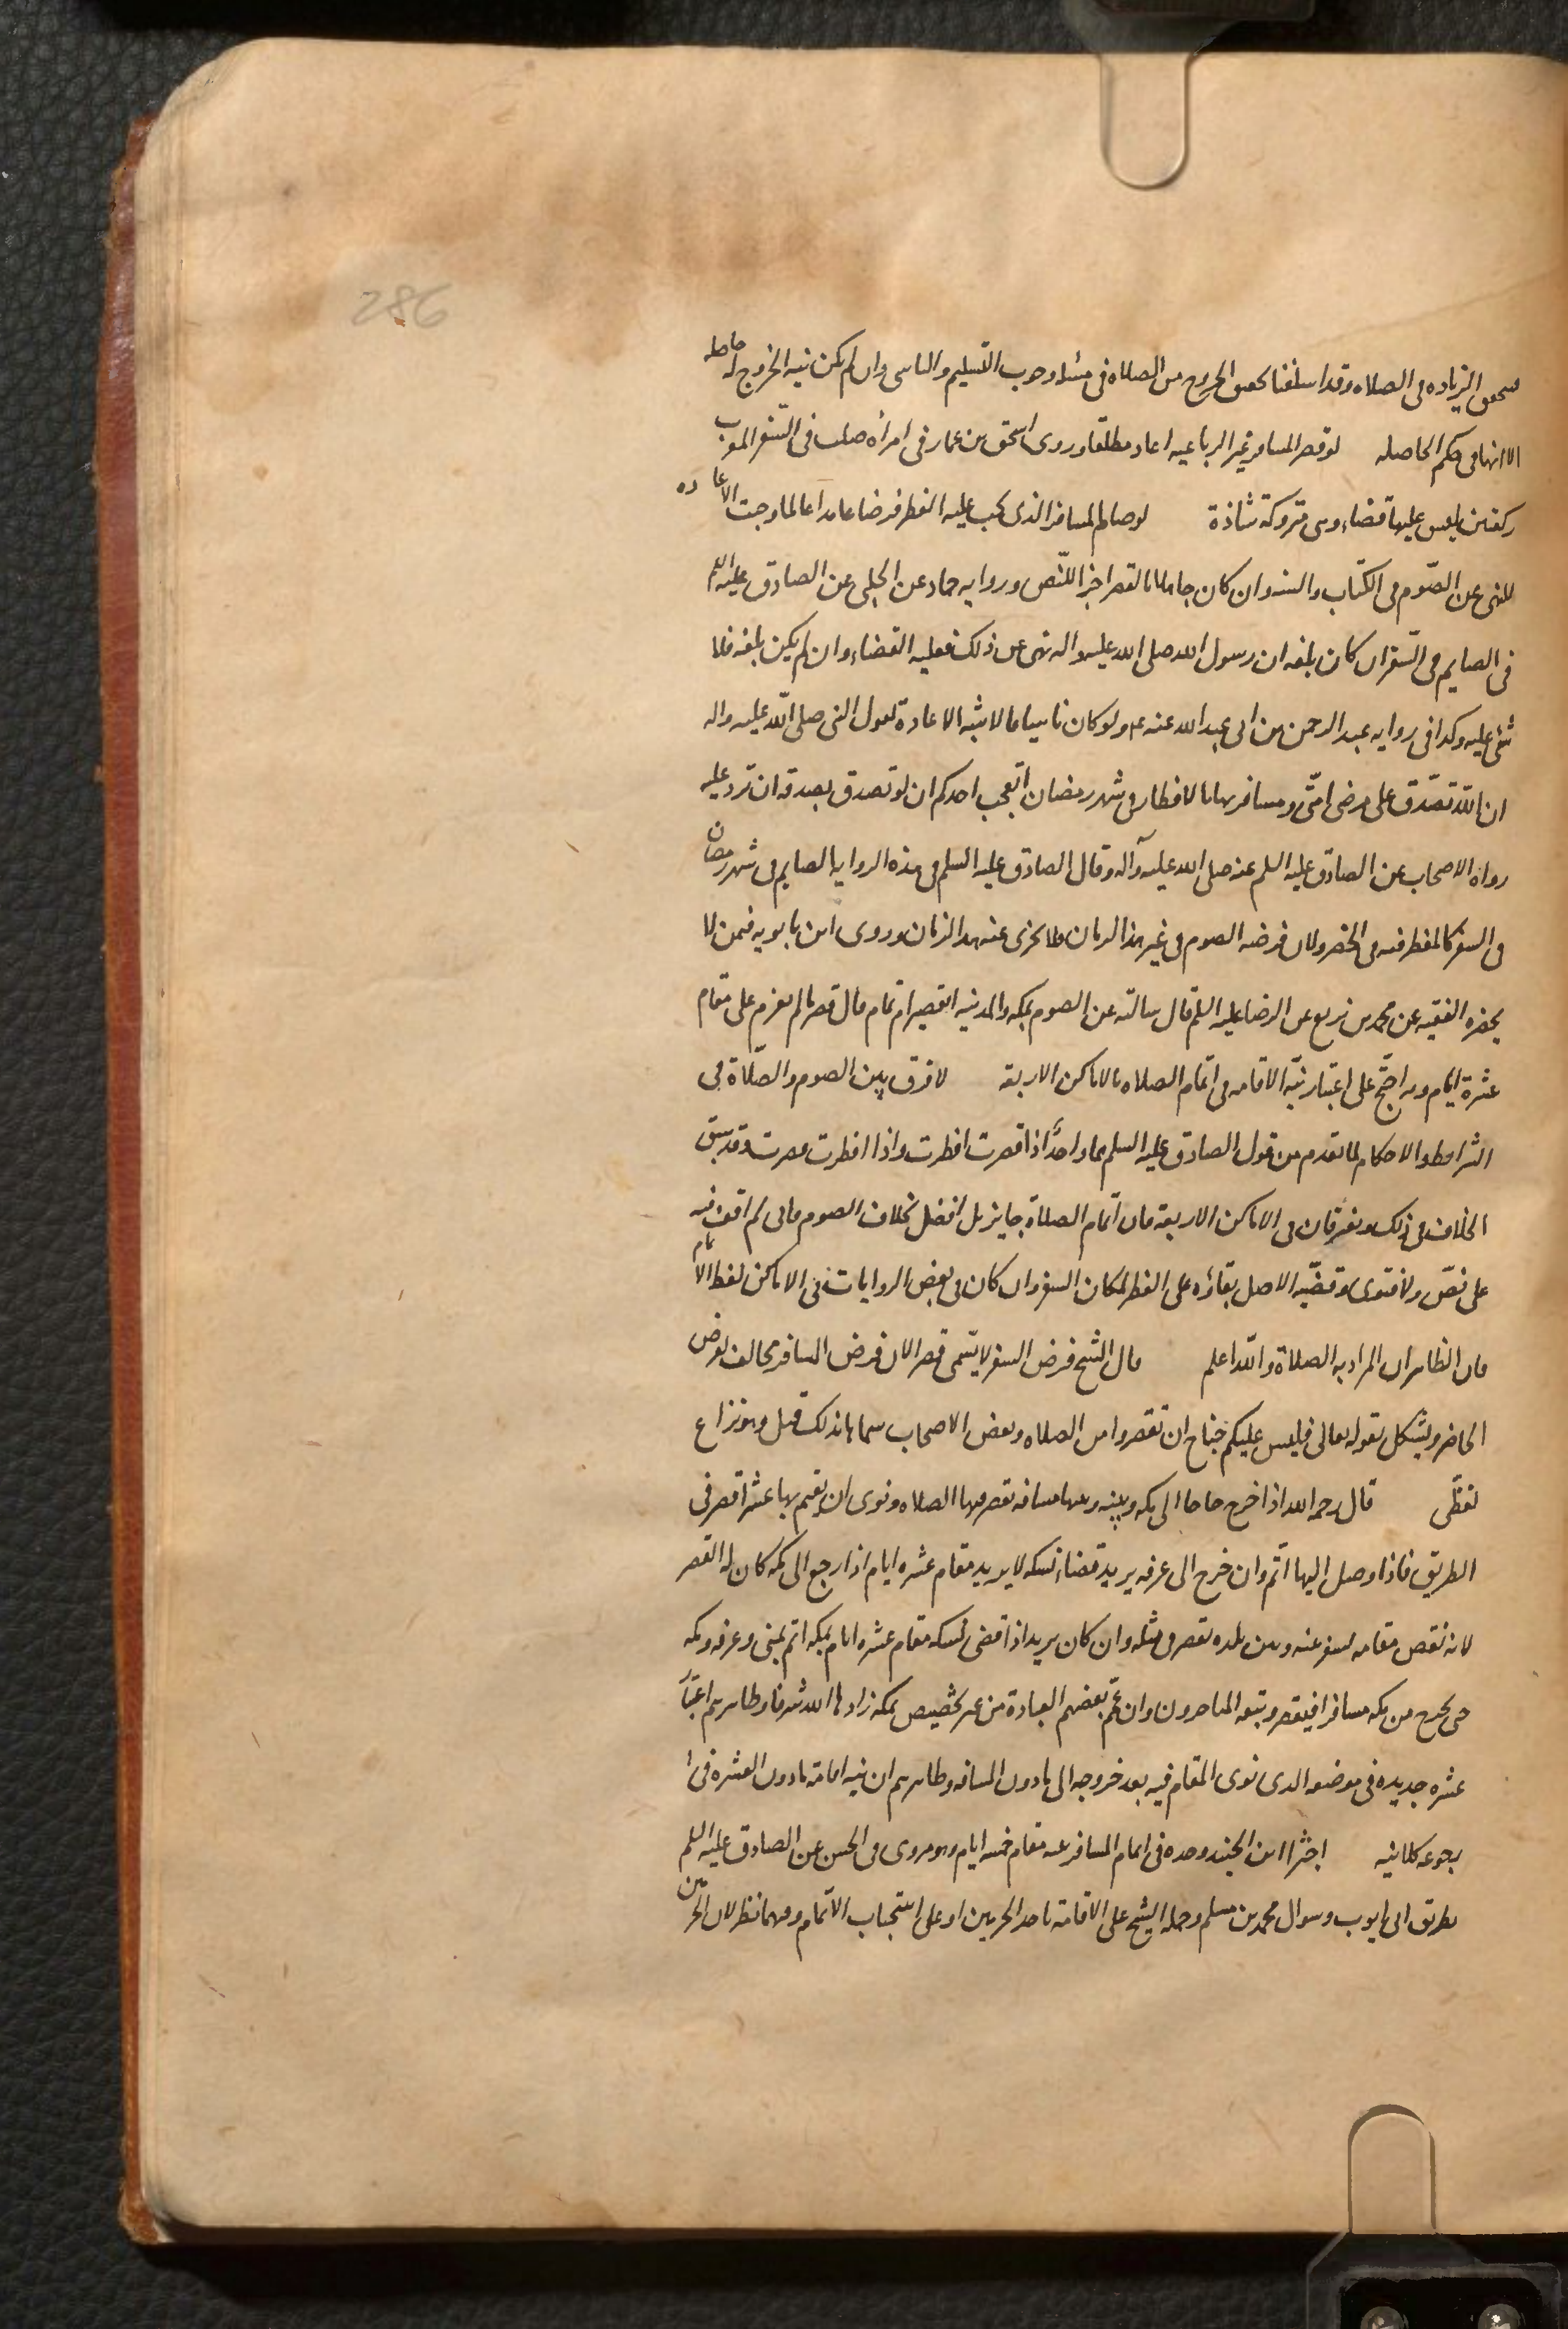 286
فتحقق الزيادة فى الصلاه وقد اسلفنا تحقق الخروج من الصلاه فى مسئله وجوب التسليم والناسى وان لم يكن نيه الخروج له حاصله
الا انها فى حكم الحاصله لو قصر المسافر غير الرباعيه اعاد مطلقا وروى اسحق بن عمار فى امراه صلت فى السفر المغرب
ركعتين ليس عليها قضاء وهى متروكة شاذة لو صام المسافر الذى يجب عليه الفطر فرضا عامدا عالما وجبت الاعاده
للنهى عن الصوم فى الكتاب والسنه وان كان جاهلا بالقصر اجزا للنص وروايه حماد عن الحلبى عن الصادق عليه السلم
فى الصايم فى السفر ان كان بلغه ان رسول الله صلى الله عليه واله نهى عن ذلك فعليه القضاء وان لم يكن بلغه فلا
شئ عليه وكذا فى روايه عبد الرحمن بن ابى عبد الله عنه ع ولو كان ناسيا فالاشبه الاعادة لقول النبى صلى الله عليه واله
ان الله تصدق على مرضى امتى ومسافريها بالافطار فى شهر رمضان ايعجب احدكم ان لو تصدق بصدقه ان ترد عليه
رواه الاصحاب عن الصادق عليه السلم عنه صلى الله عليه وآله وقال الصادق عليه السلم فى هذه الروايه الصايم فى شهر رمضان
فى السفر كالمفطر فيه فى الحضر ولان فرضه الصوم فى غير هذا الزمان فلا يجزى عنه هذا الزمان وروى ابن بابويه فى من لا
يحضره الفقيه عن محمد بن بزيع عن الرضا عليه السلم قال سالته عن الصوم بمكه والمدينه اتقصير ام تمام قال قصر ما لم تعزم على مقام
عشرة ايام وبه احتج على اعتبار نيّة الاقامه فى اتمام الصلاه بالاماكن الاربعه لا فرق بين الصوم والصلاة فى
الشرايط والاحكام لما تقدم من قول الصادق عليه السلم هما واحد اذا قصرت افطرت واذا افطرت قصرت وقد سبق
الخلاف فى ذلك ويفرقان فى الاماكن الاربعة فان اتمام الصلاة جايز بل افضل بخلاف الصوم فانى لم اقف فيه
على نصّ ولا فتوى وقضيّة الاصل بقاؤه على الفطر لمكان السفر وان كان فى بعض الروايات فى الاماكن لفظ الاتمام
فان الظاهر ان المراد به الصلاة والله اعلم قال الشيخ فرض السفر لا يسمى قصرا لان فرض المسافر مخالف لفرض
الحاضر ويشكل بقوله تعالى فليس عليكم جناح ان تقصروا من الصلاه وبعض الاصحاب سماها بذلك قيل وهو نزاع
لفظى قال رحمه الله اذا خرج حاجا الى مكه وبينه وبينها مسافه تقصر فيها الصلاه ونوى ان يقيم بها عشرا قصر فى
الطريق فاذا وصل اليها اتم وان خرج الى عرفه يريد قضاء نسكه لا يريد مقام عشره ايام اذا رجع الى مكه كان له القصر
لانه نقض مقامه بسفر عنه وبين بلده تقصر فى مثله وان كان يريد اذا قضى نسكه مقام عشره ايام بمكه اتم بمنى وعرفه ومكه
حتى يخرج من مكه مسافرا فيقصر وتبعه المتاخرون وان عمّ بعضهم العبادة من غير تخصيص بمكه زادها الله شرفا وظاهرهم اعتبار
عشره جديده فى موضعه الذى نوى المقام فيه بعد خروجه الى ما دون المسافه وظاهرهم ان نيه اقامة ما دون العشره فى ا
رجوعه كلا نيه اجتزا ابن الجنيد وحده فى اتمام المسافر بنية مقام خمسه ايام وهو مروى فى الحسن عن الصادق عليه السلم
بطريق ابى ايوب وسوال محمد بن مسلم وحمله الشيخ على الاقامة باحد الحرمين او على استحباب الاتمام وفيهما نظر لان الحرمين